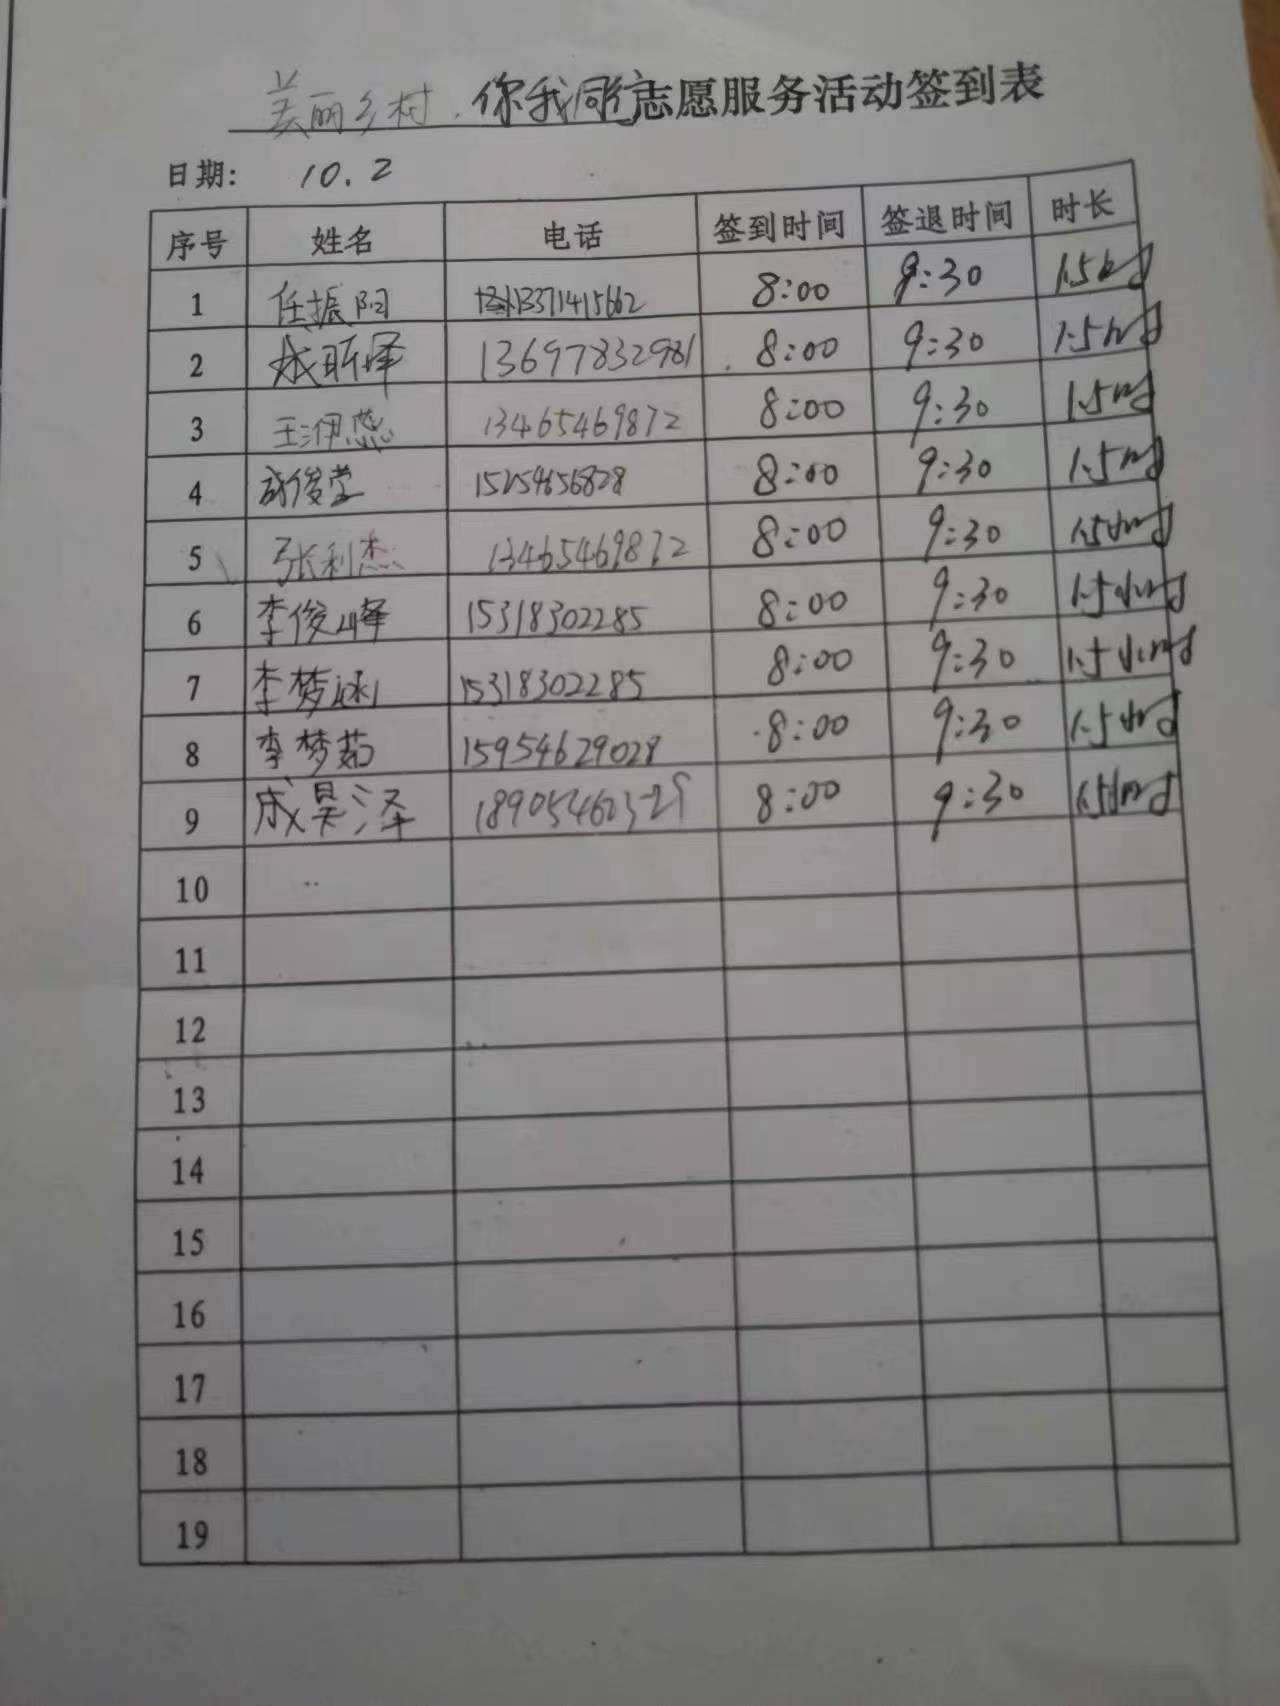 美丽乡村，你我同行志愿服务活动签到表
日期: 10.2
序号 姓名 电话 签到时间 签退时间 时长
1 任振阳 13371415662 8:00 9:30 1.5小时
2 成昕泽 13697832981 8:00 9:30 1.5小时
3 王洢蕊 13465469872 8:00 9:30 1.5小时
4 成俊莹 15254656828 8:00 9:30 1.5小时
5 张利杰 13465469872 8:00 9:30 1.5小时
6 李俊峰 15318302285 8:00 9:30 1.5小时
7 李梦涵 15318302285 8:00 9:30 1.5小时
8 李梦茹 15954629028 8:00 9:30 1.5小时
9 成昊泽 8:00 9:30 1.5小时
10
11
12
13
14
15
16
17
18
19